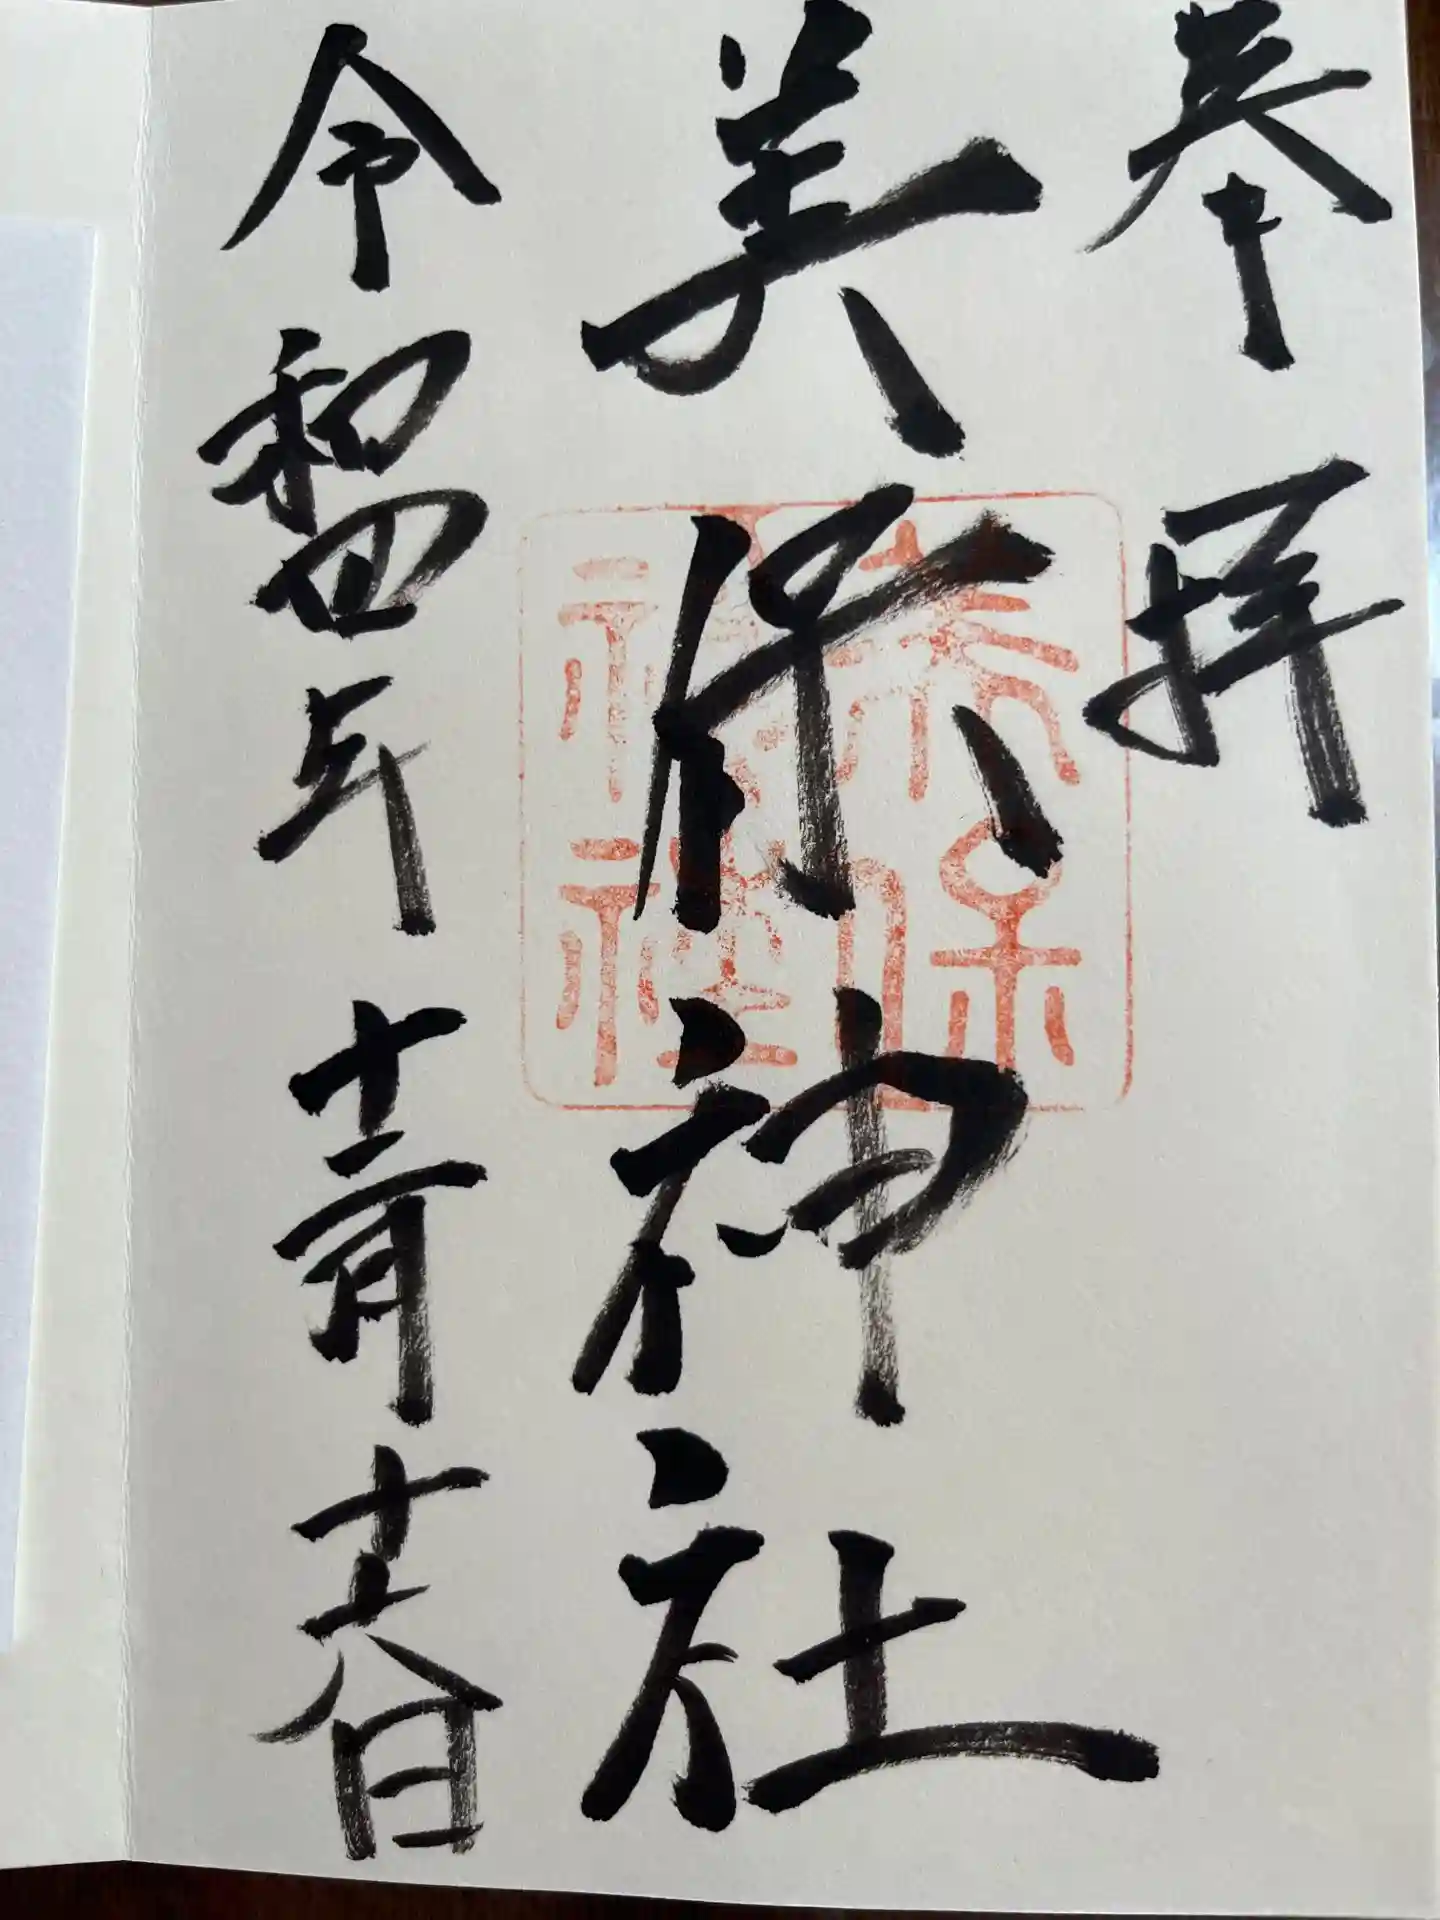 奉拝
美保神社
美保神社
令和四年十二月十六日